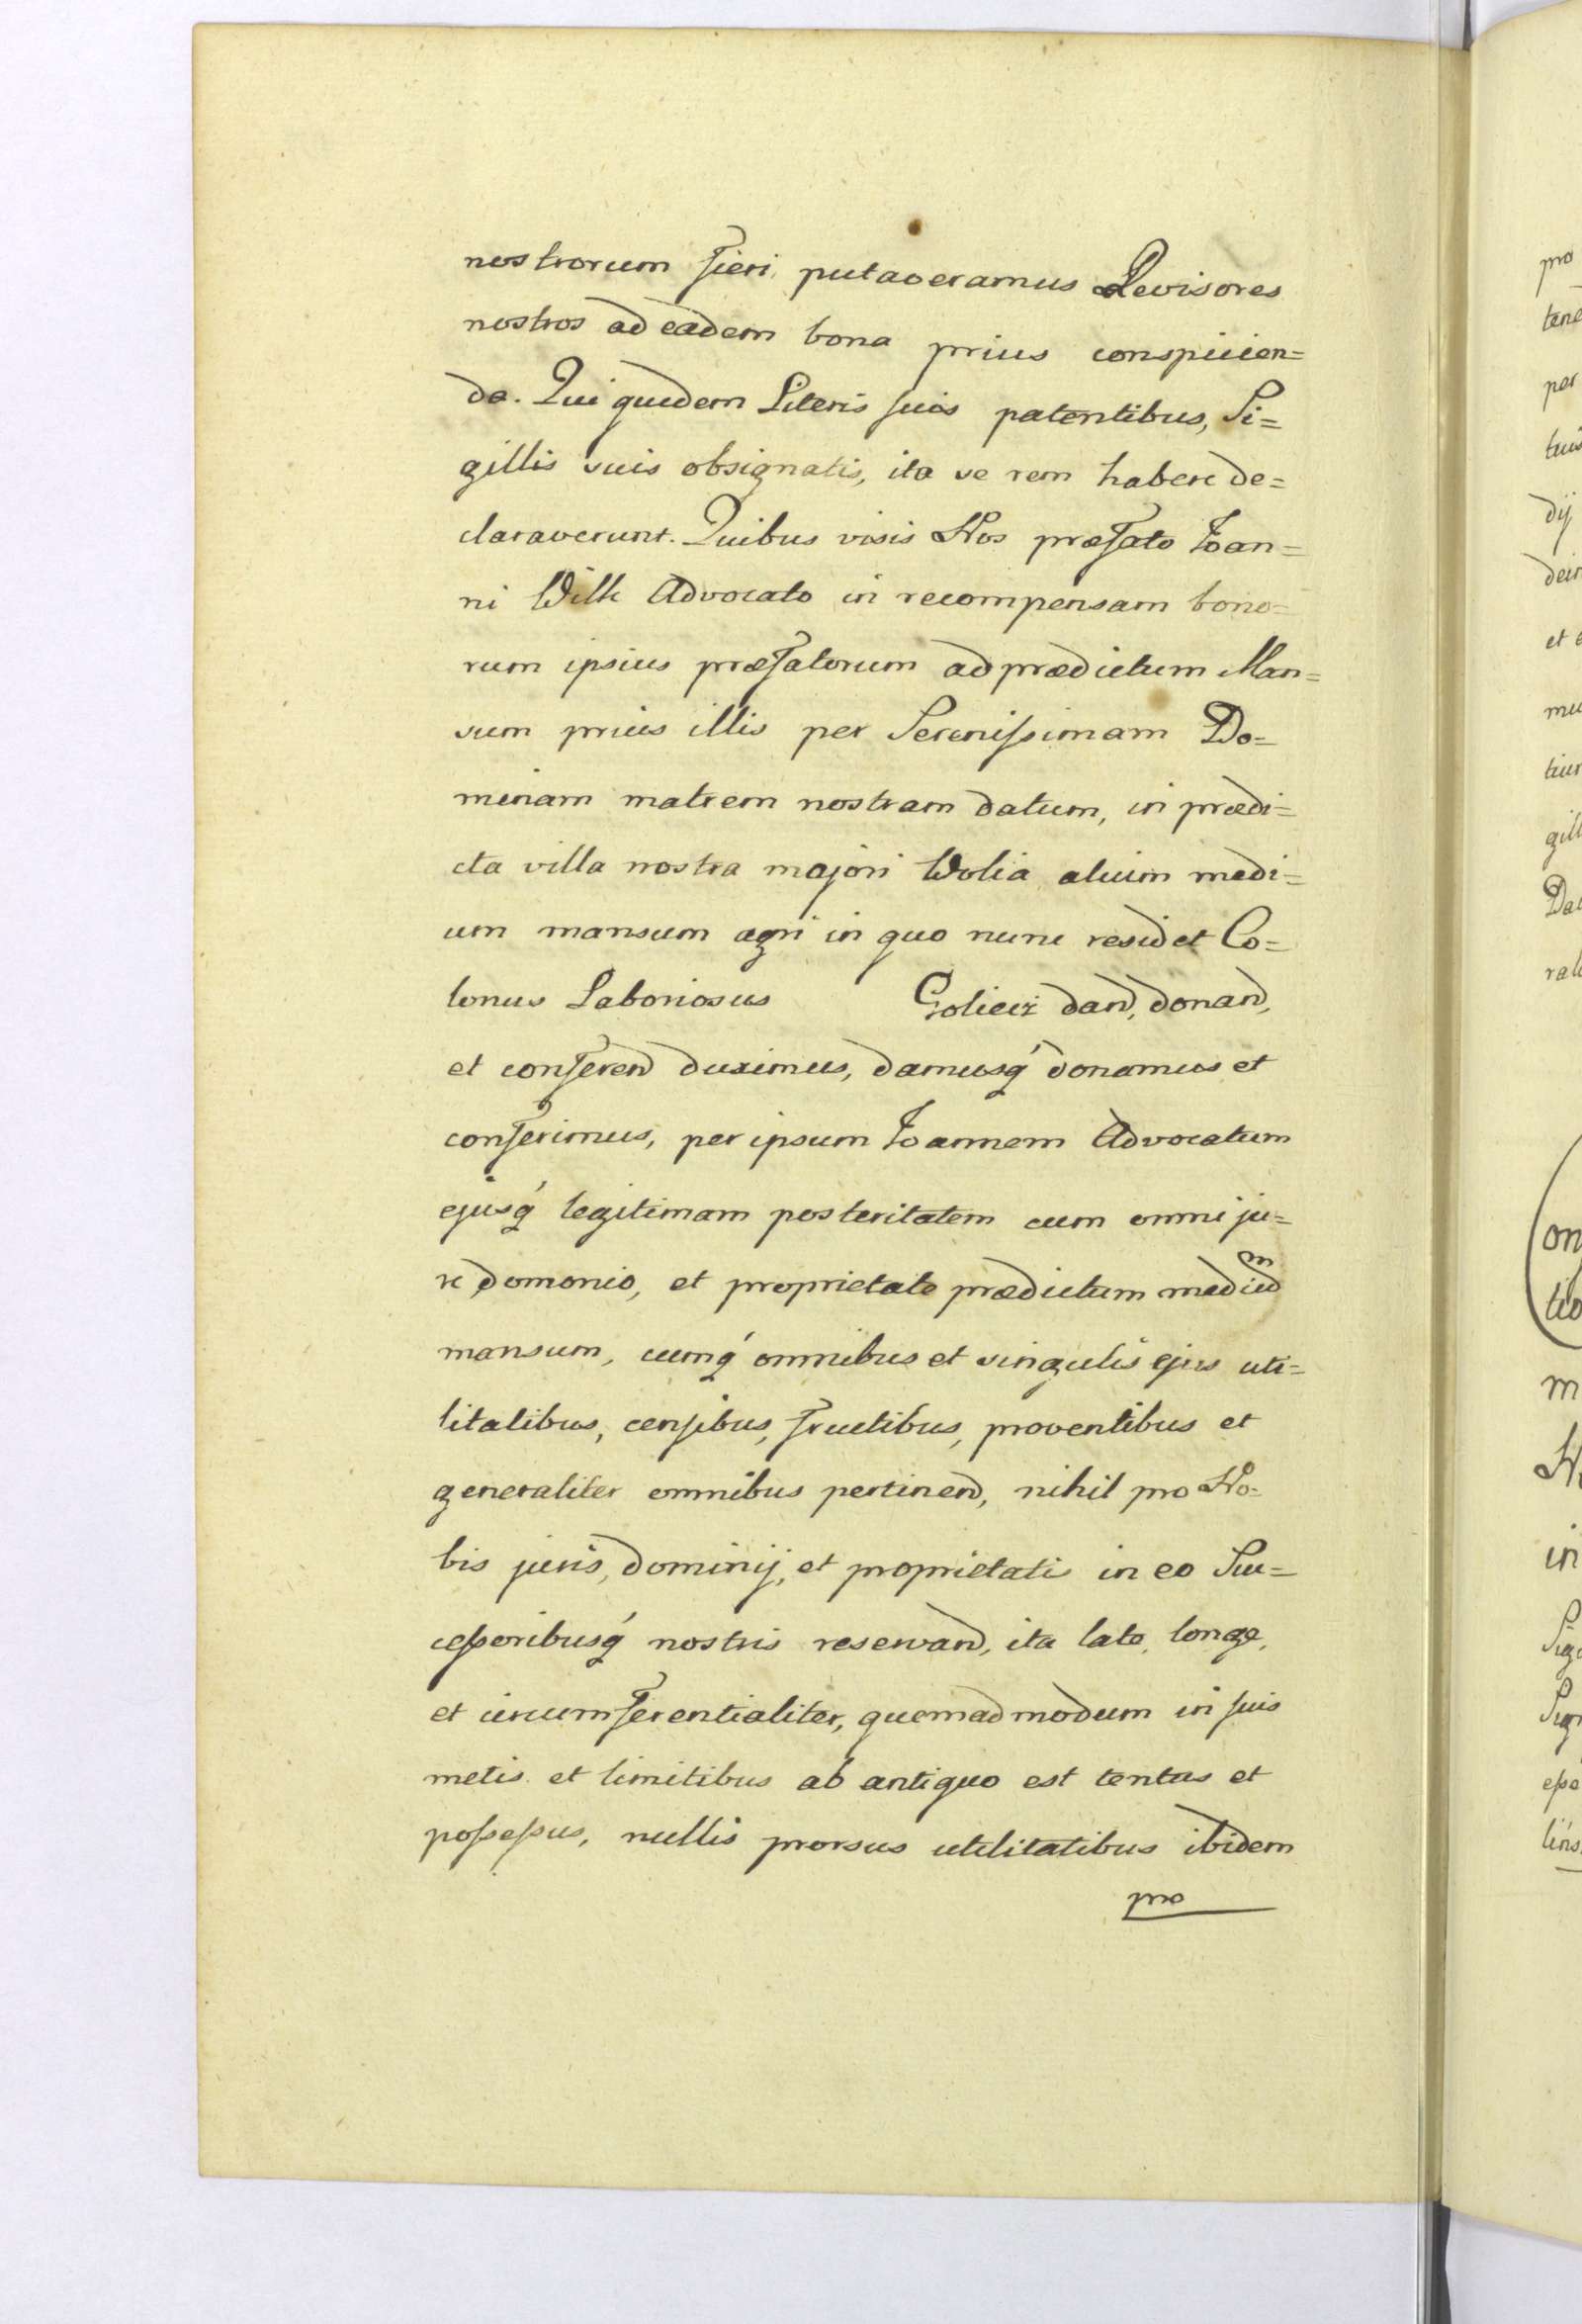 nostrorum fieri putaveramus Revisores
nostros ad eadem bona prius conspicien=
da. Qui quidem Literis suis patentibus, Si=
gillis suis obsignatis, ita se rem habere de=
claraverunt. Quibus visis Nos præfato Joan=
ni Wilk Advocato in recompensam bono=
rum ipsius præfatorum ad prædictum Man=
sum prius illis per Serenissimam Do=
minam matrem nostram datum, in prædi=
cta villa nostra majori Wolia alium medi=
um mansum agri in quo nunc residet Co=
lonus Laboriosus Goliecz dand, donand,
et conferend duximus, damusq́ donamus et
conferimus, per ipsum Joannem Advocatum
ejusq́ legitimam posteritatem cum omni ju=
re domonio, et proprietate prædictum medium
mansum, cumq́ omnibus et singulis ejus uti=
litatibus, censibus, fructibus, proventibus et
generaliter omnibus pertinend, nihil pro No=
bis juris, dominij, et proprietatis in eo Suc=
cessoribusq́ nostris reservand, ita late, longe,
et circumferentialiter, quemadmodum in suis
metis et limitibus ab antiquo est tentus et
possessus, nullis prorsus utilitatibus ibidem
pro